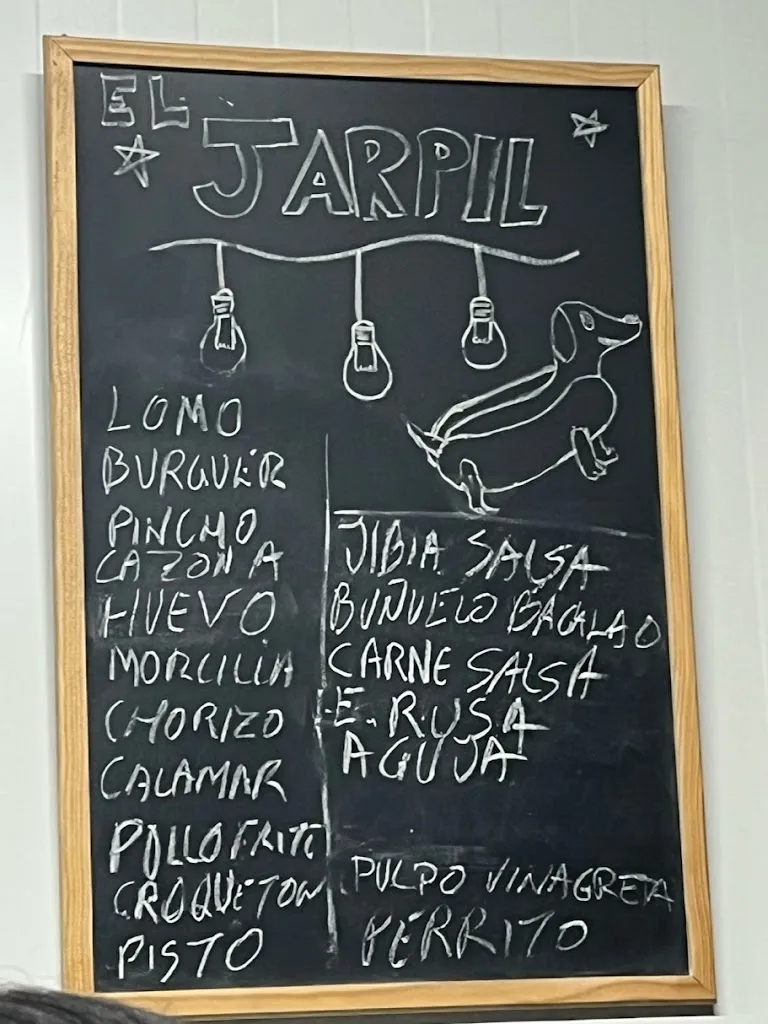 EL
JARPIL
LOMO
BURGUER
PINCHO
CAZON A
HUEVO
MORCILLA
CHORIZO
CALAMAR
POLLO FRITO
CROQUETON
PISTO
JIBIA SALSA
BUÑUELO BACALAO
CARNE SALSA
E. RUSA
AGUJA
PULPO VINAGRETA
PERRITO